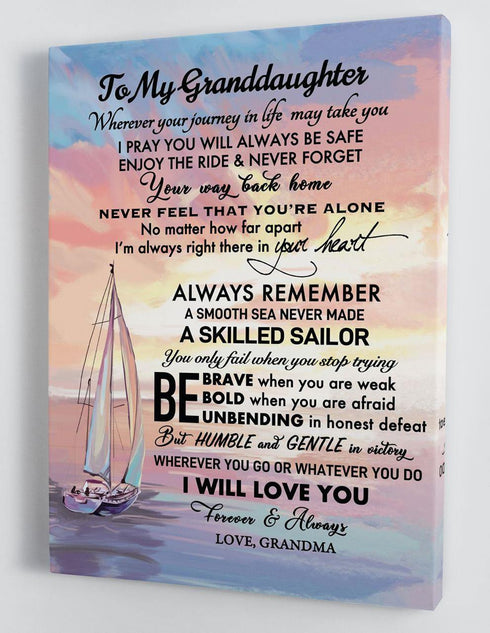 To My Granddaughter
Wherever your journey in life may take you
I PRAY YOU WILL ALWAYS BE SAFE
ENJOY THE RIDE & NEVER FORGET
Your way back home
NEVER FEEL THAT YOU'RE ALONE
No matter how far apart
I'm always right there in your heart
ALWAYS REMEMBER
A SMOOTH SEA NEVER MADE
A SKILLED SAILOR
You only fail when you stop trying
BE BRAVE when you are weak
BOLD when you are afraid
UNBENDING in honest defeat
But HUMBLE and GENTLE in victory
WHEREVER YOU GO OR WHATEVER YOU DO
I WILL LOVE YOU
Forever & Always
LOVE, GRANDMA